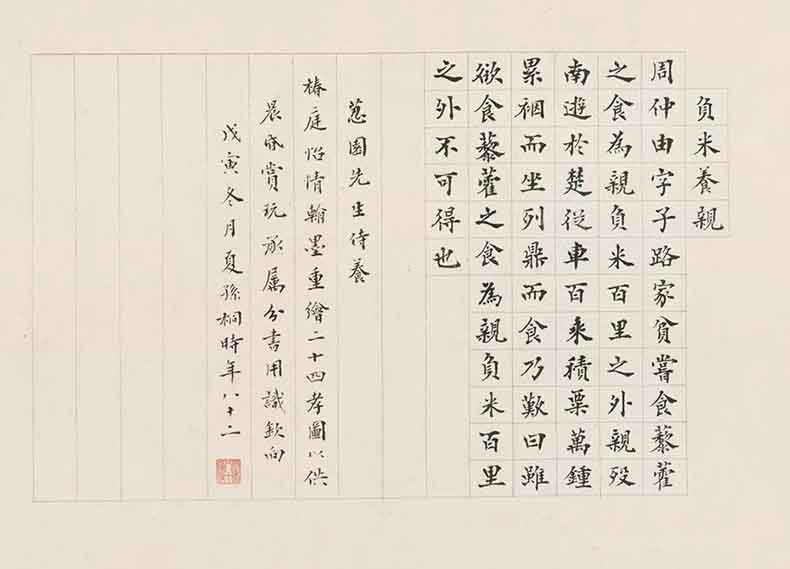 負米養親
周仲由字子路家貧嘗食藜藿
之食為親負米百里之外親歿
南遊於楚從車百乘積粟萬鍾
累裀而坐列鼎而食乃歎曰雖
欲食藜藿之食為親負米百里
之外不可得也
蔥園先生侍養
椿庭怡情翰墨重繪二十四孝圖以供
晨昏賞玩承屬分書用識欽向
戊寅冬月夏孫桐時年八十二